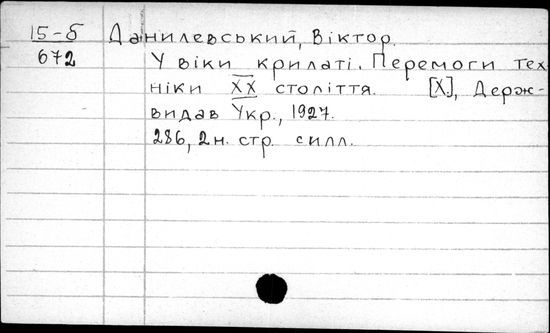 15-б Данилевський, Віктор.
672 У віки крилаті. Перемоги тех-
ніки XX століття. [Х], Держ-
видав Укр., 1927.
286, 2 н. стр. с илл.